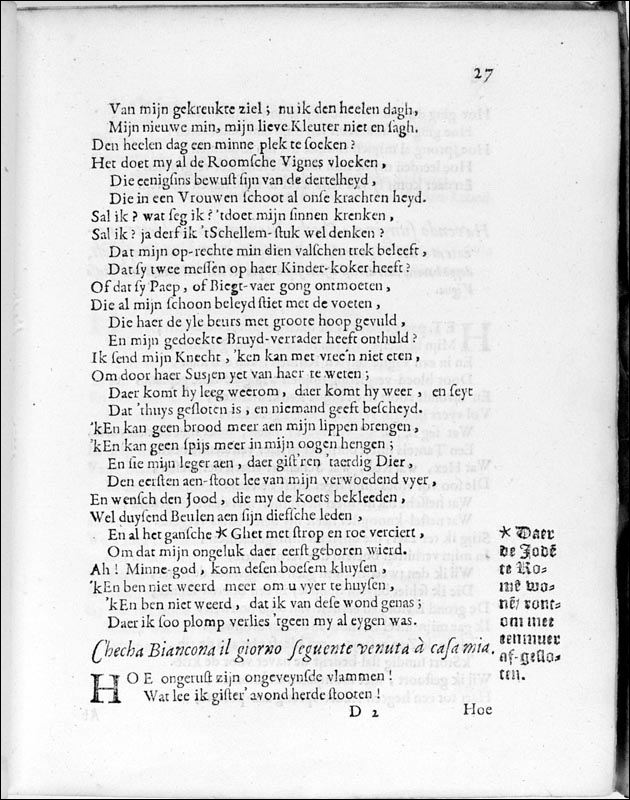 27
Van mijn gekreukte ziel; nu ik den heelen dagh,
Mijn nieuwe min, mijn lieve Kleuter niet en ſagh.
Den heelen dag een minne plek te ſoeken?
Het doet my al de Roomſche Vignes vloeken,
Die eenigſins bewuſt ſijn van de dertelheyd,
Die in een Vrouwen ſchoot al onſe krachten heyd.
Sal ik? wat ſeg ik? 'tdoet mijn ſinnen krenken,
Sal ik? ja derf ik 'tSchellem-ſtuk wel denken?
Dat mijn op-rechte min dien valſchen trek beleeft,
Dat ſy twee meſſen op haer Kinder-koker heeft?
Of dat ſy Paep, of Biegt-vaer gong ontmoeten,
Die al mijn ſchoon beleyd ſtiet met de voeten,
Die haer de yle beurs met groote hoop gevuld,
En mijn gedoekte Bruyd-verrader heeft onthuld?
Ik ſend mijn Knecht, 'ken kan met vree'n niet eten,
Om door haer Susjen yet van haer te weten;
Daer komt hy leeg weerom, daer komt hy weer, en ſeyt
Dat 'thuys geſloten is, en niemand geeft beſcheyd.
'kEn kan geen brood meer aen mijn lippen brengen,
'kEn kan geen ſpijs meer in mijn oogen hengen;
En ſie mijn leger aen, daer giſt'ren 'taerdig Dier,
Den eerſten aen-ſtoot lee van mijn verwoedend vyer,
En wenſch den Jood, die my de koets bekleeden,
Wel duyſend Beulen aen ſijn dieſſche leden,
En al het ganſche * Ghet met ſtrop en roe verciert,
Om dat mijn ongeluk daer eerſt geboren wierd.
Ah! Minne-god, kom deſen boeſem kluyſen,
'kEn ben niet weerd meer om u vyer te huyſen,
'kEn ben niet weerd, dat ik van deſe wond genas;
Daer ik ſoo plomp verlies 'tgeen my al eygen was.
* Daer
de Jodē
te Ro-
mē wo-
nē, ront-
om met
een muer
af-geſlo-
ten.
Checha Biancona il giorno ſeguente venuta à caſa mia.
HOE ongeruſt zijn ongeveynſde vlammen!
Wat lee ik giſter' avond herde ſtooten!
D 2
Hoe